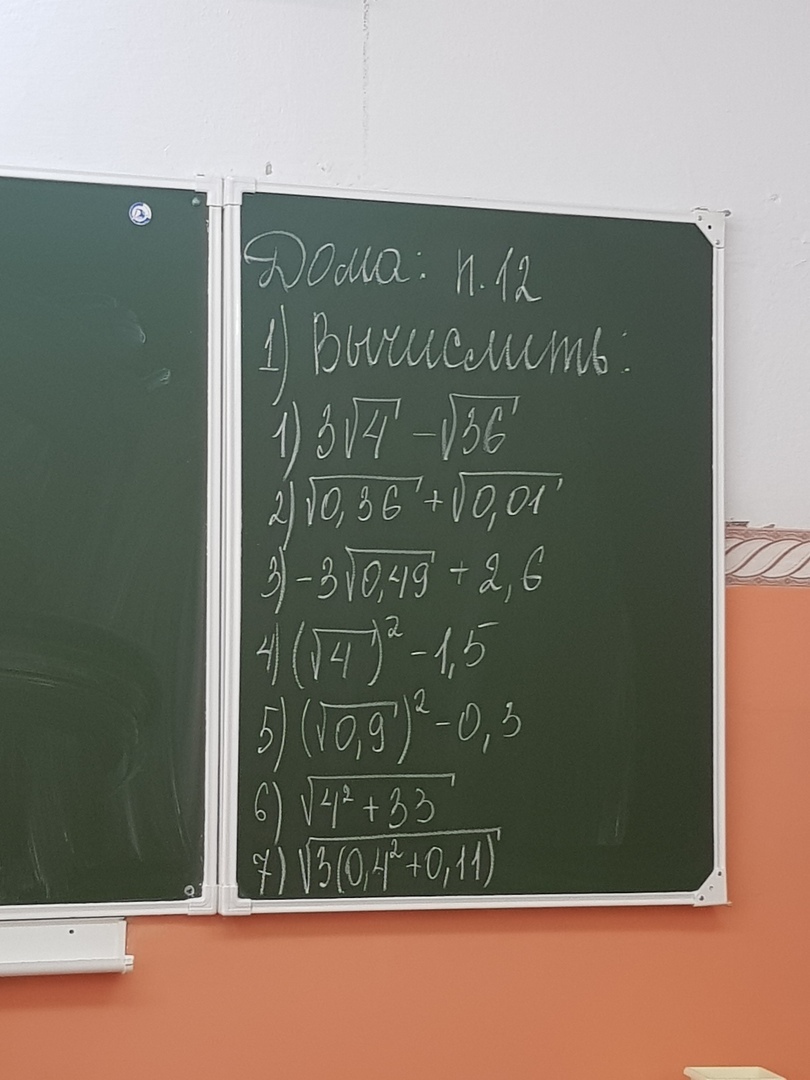 Дома: п. 12
1) Вычислить:
1) 3√4 - √36
2) √0,36 + √0,01
3) -3√0,49 + 2,6
4) (√4)² - 1,5
5) (√0,9)² - 0,3
6) √4² + 33
7) √3(0,4² + 0,11)